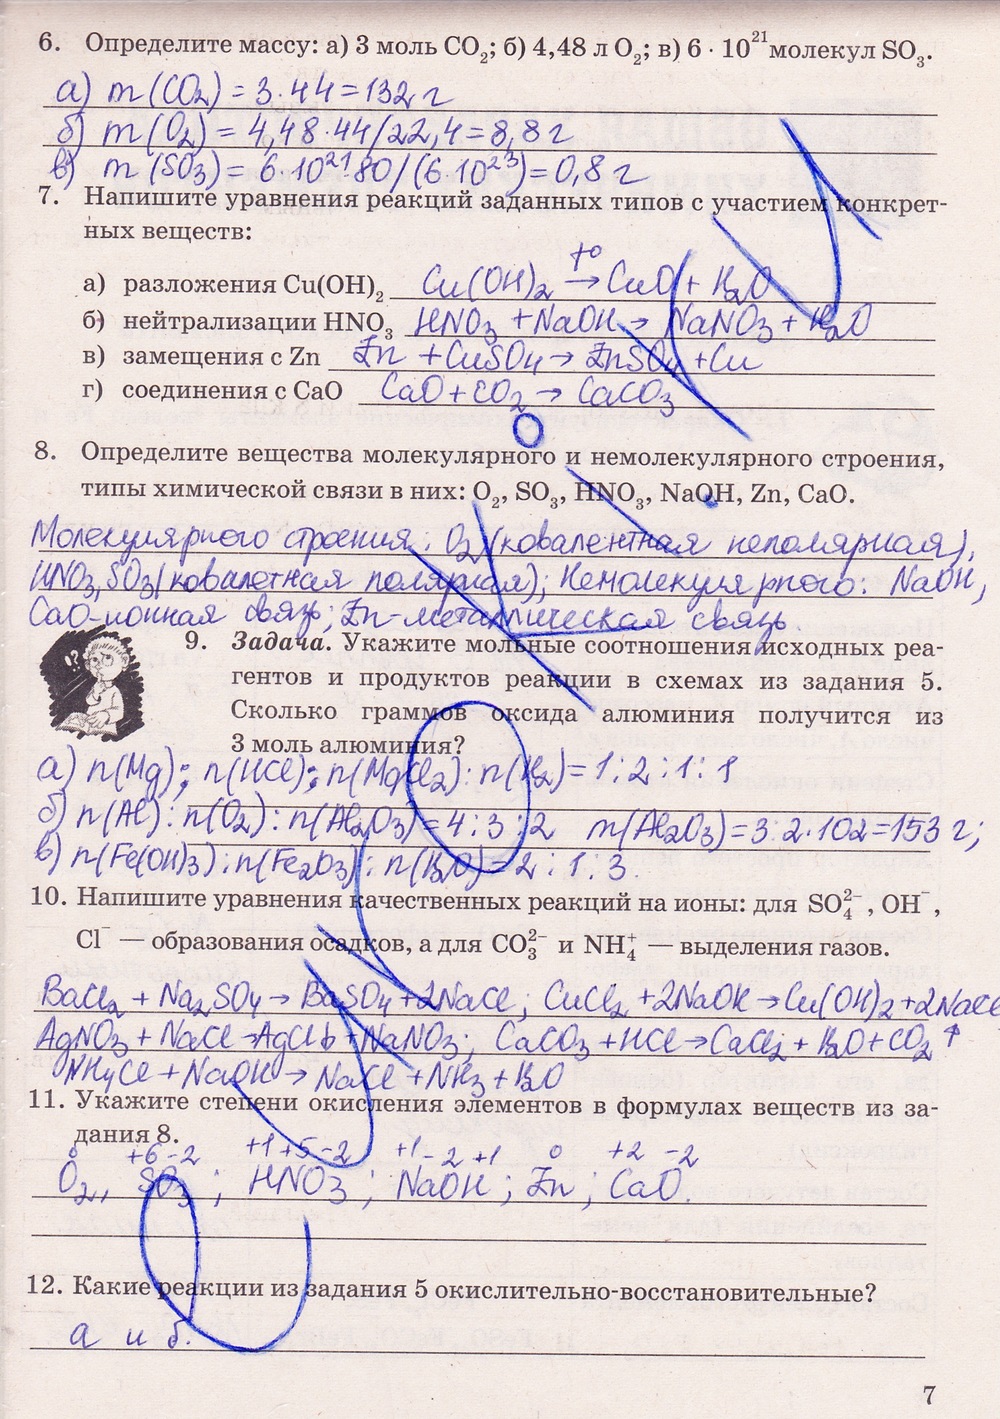 6. Определите массу: а) 3 моль CO₂; б) 4,48 л O₂; в) 6 · 10²¹ молекул SO₃.
а) m(CO₂) = 3·44=132 г
б) m(O₂) = 4,48·44/22,4=8,8 г
в) m(SO₃)= 6·10²¹·80/(6·10²³)=0,8 г
7. Напишите уравнения реакций заданных типов с участием конкрет-
ных веществ:
а) разложения Cu(OH)₂ Cu(OH)₂ →t° CuO + H₂O
б) нейтрализации HNO₃ HNO₃ +NaOH→ NaNO₃ + H₂O
в) замещения с Zn Zn +CuSO₄→ ZnSO₄ +Cu
г) соединения с CaO CaO+CO₂ → CaCO₃
8. Определите вещества молекулярного и немолекулярного строения,
типы химической связи в них: O₂, SO₃, HNO₃, NaOH, Zn, CaO.
Молекулярного строения: O₂ (ковалентная неполярная),
HNO₃, SO₃(ковалетная полярная); Немолекулярного: NaOH,
CaO-ионная связь; Zn-металлическая связь.
9. Задача. Укажите мольные соотношения исходных реа-
гентов и продуктов реакции в схемах из задания 5.
Сколько граммов оксида алюминия получится из
3 моль алюминия?
а) n(Mg): n(HCl): n(MgCl₂): n(H₂)=1:2:1:1
б) n(Al): n(O₂): n(Al₂O₃)=4:3:2 m(Al₂O₃)=3:2·102=153 г;
в) n(Fe(OH)₃): n(Fe₂O₃): n(H₂O)=2:1:3.
10. Напишите уравнения качественных реакций на ионы: для SO₄²⁻, OH⁻,
Cl⁻ — образования осадков, а для CO₃²⁻ и NH₄⁺ — выделения газов.
BaCl₂ + Na₂SO₄→ BaSO₄+2NaCl; CuCl₂ +2NaOH→Cu(OH)₂+2NaCl
AgNO₃ + NaCl→AgCl↓+NaNO₃; CaCO₃ +HCl→CaCl₂+ H₂O+CO₂↑
NH₄Cl +NaOH→ NaCl +NH₃ + H₂O
11. Укажите степени окисления элементов в формулах веществ из за-
дания 8.
0 +6 -2 +1 +5 -2 +1 -2 +1 0 +2 -2
O₂, SO₃; HNO₃; NaOH; Zn; CaO.
12. Какие реакции из задания 5 окислительно-восстановительные?
а и б.
7